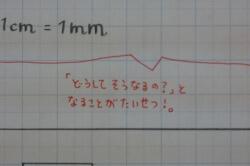 1cm = 1mm
「どうして そうなるの?」と
なることがたいせつ!。